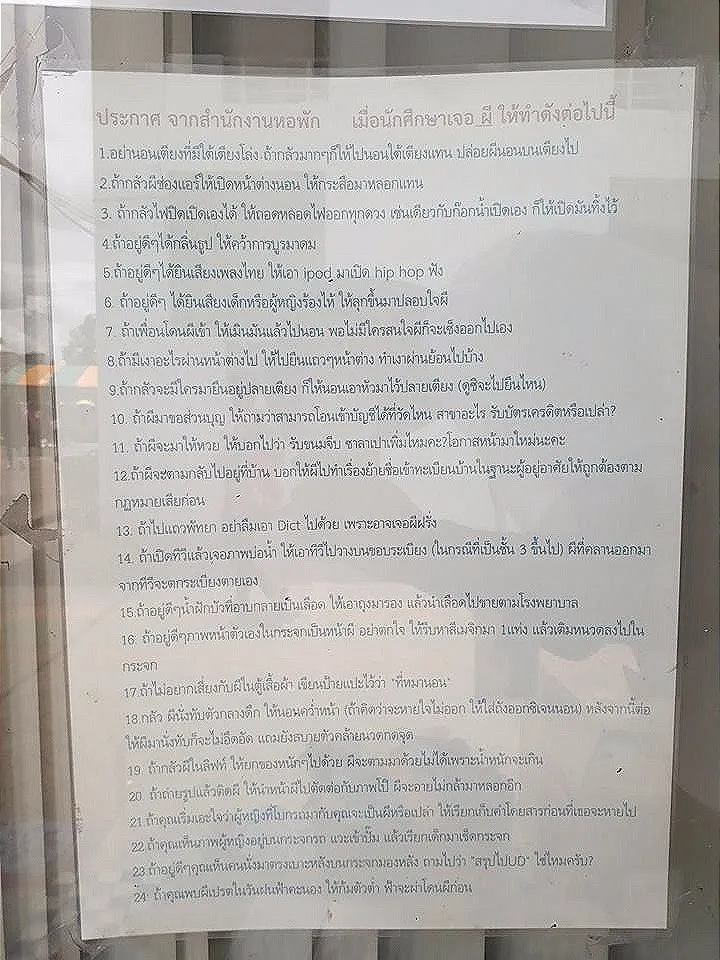 ประกาศ จากสำนักงานหอพัก เมื่อนักศึกษาเจอ ผี ให้ทำดังต่อไปนี้
1.อย่านอนเตียงที่มีใต้เตียงโล่ง ถ้ากลัวมากๆก็ให้ไปนอนใต้เตียงแทน ปล่อยผีนอนบนเตียงไป
2.ถ้ากลัวผีช่องแอร์ให้เปิดหน้าต่างนอน ให้กระสือมาหลอกแทน
3. ถ้ากลัวไฟปิดเปิดเองได้ ให้ถอดหลอดไฟออกทุกดวง เช่นเดียวกับก๊อกน้ำเปิดเอง ก็ให้เปิดมันทิ้งไว้
4.ถ้าอยู่ดีๆได้กลิ่นธูป ให้คว้าการบูรมาดม
5.ถ้าอยู่ดีๆได้ยินเสียงเพลงไทย ให้เอา ipod มาเปิด hip hop ฟัง
6. ถ้าอยู่ดีๆ ได้ยินเสียงเด็กหรือผู้หญิงร้องไห้ ให้ลุกขึ้นมาปลอบใจผี
7. ถ้าเพื่อนโดนผีเข้า ให้เมินมันแล้วไปนอน พอไม่มีใครสนใจผีก็จะเซ็งออกไปเอง
8.ถ้ามีเงาอะไรผ่านหน้าต่างไป ให้ไปยืนแถวๆหน้าต่าง ทำเงาผ่านย้อนไปบ้าง
9.ถ้ากลัวจะมีใครมายืนอยู่ปลายเตียง ก็ให้นอนเอาหัวมาไว้ปลายเตียง (ดูซิจะไปยืนไหน)
10. ถ้าผีมาขอส่วนบุญ ให้ถามว่าสามารถโอนเข้าบัญชีได้ที่วัดไหน สาขาอะไร รับบัตรเครดิตหรือเปล่า?
11. ถ้าผีจะมาให้หวย ให้บอกไปว่า รับขนมจีบ ซาลาเปาเพิ่มไหมคะ?โอกาสหน้ามาใหม่นะคะ
12.ถ้าผีจะตามกลับไปอยู่ที่บ้าน บอกให้ผีไปทำเรื่องย้ายชื่อเข้าทะเบียนบ้านในฐานะผู้อยู่อาศัยให้ถูกต้องตาม
กฎหมายเสียก่อน
13. ถ้าไปแถวพัทยา อย่าลืมเอา Dict ไปด้วย เพราะอาจเจอผีฝรั่ง
14. ถ้าเปิดทีวีแล้วเจอภาพบ่อน้ำ ให้เอาทีวีไปวางบนขอบระเบียง (ในกรณีที่เป็นชั้น 3 ขึ้นไป) ผีที่คลานออกมา
จากทีวีจะตกระเบียงตายเอง
15.ถ้าอยู่ดีๆน้ำฝักบัวที่อาบกลายเป็นเลือด ให้เอาถุงมารอง แล้วนำเลือดไปขายตามโรงพยาบาล
16. ถ้าอยู่ดีๆภาพหน้าตัวเองในกระจกเป็นหน้าผี อย่าตกใจ ให้รีบหาสีเมจิกมา 1แท่ง แล้วเติมหนวดลงไปใน
กระจก
17.ถ้าไม่อยากเสี่ยงกับผีในตู้เสื้อผ้า เขียนป้ายแปะไว้ว่า "ที่หมานอน"
18.กลัว ผีนั่งทับตัวกลางดึก ให้นอนคว่ำหน้า (ถ้าคิดว่าจะหายใจไม่ออก ให้ใส่ถังออกซิเจนนอน) หลังจากนี้ต่อ
ให้ผีมานั่งทับก็จะไม่อึดอัด แถมยังสบายตัวคล้ายนวดกดจุด
19. ถ้ากลัวผีในลิฟท์ ให้ยกของหนักๆไปด้วย ผีจะตามมาด้วยไม่ได้เพราะน้ำหนักจะเกิน
20. ถ้าถ่ายรูปแล้วติดผี ให้นำหน้าผีไปตัดต่อกับภาพโป๊ ผีจะอายไม่กล้ามาหลอกอีก
21.ถ้าคุณเริ่มเอะใจว่าผู้หญิงที่โบกรถมากับคุณจะเป็นผีหรือเปล่า ให้เรียกเก็บค่าโดยสารก่อนที่เธอจะหายไป
22.ถ้าคุณเห็นภาพผู้หญิงอยู่บนกระจกรถ แวะเข้าปั๊ม แล้วเรียกเด็กมาเช็ดกระจก
23.ถ้าอยู่ดีๆคุณเห็นคนนั่งมาตรงเบาะหลังบนกระจกมองหลัง ถามไปว่า "สรุปไปUD" ใช่ไหมครับ?
24. ถ้าคุณพบผีเปรตในวันฝนฟ้าคะนอง ให้ก้มตัวต่ำ ฟ้าจะผ่าโดนผีก่อน